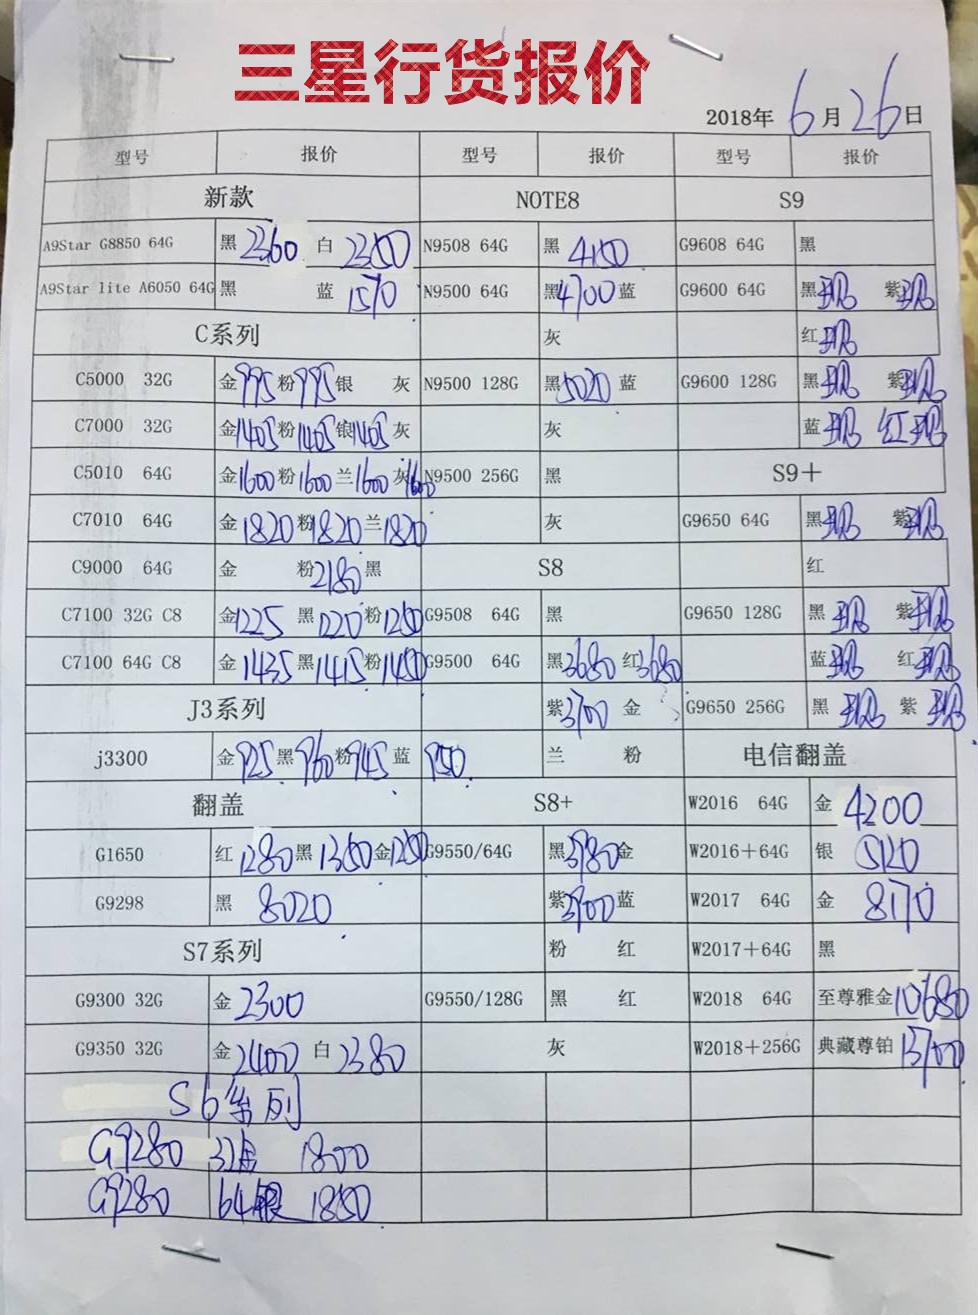 三星行货报价
2018年 6月26日
型号 报价 型号 报价 型号 报价
新款 NOTE8 S9
A9Star G8850 64G 黑 2360 白 2350 N9508 64G 黑 4150 G9608 64G 黑
A9Star lite A6050 64G 黑 蓝 1570 N9500 64G 黑 4700 蓝 G9600 64G 黑 现 紫 现
C系列 灰 红 现
C5000 32G 金 995 粉 995 银 灰 N9500 128G 黑 5020 蓝 G9600 128G 黑 现 紫 现
C7000 32G 金 1405 粉 1405 银 1405 灰 灰 蓝 现 红 现
C5010 64G 金 1600 粉 1600 兰 1600 灰 1600 N9500 256G 黑 S9＋
C7010 64G 金 1820 粉 1820 兰 1820 灰 G9650 64G 黑 现 紫 现
C9000 64G 金 粉 2180 黑 S8 红
C7100 32G C8 金 1225 黑 1220 粉 1250 G9508 64G 黑 G9650 128G 黑 现 紫 现
C7100 64G C8 金 1435 黑 1415 粉 1450 G9500 64G 黑 3680 红 3680 蓝 现 红 现
J3系列 紫 3700 金 G9650 256G 黑 现 紫 现
j3300 金 925 黑 960 粉 945 蓝 950 兰 粉 电信翻盖
翻盖 S8+ W2016 64G 金 4200
G1650 红 1280 黑 1350 金 1250 G9550/64G 黑 3980 金 W2016＋64G 银 5120
G9298 黑 8020 紫 3900 蓝 W2017 64G 金 8170
S7系列 粉 红 W2017＋64G 黑
G9300 32G 金 2300 G9550/128G 黑 红 W2018 64G 至尊雅金 10680
G9350 32G 金 2400 白 2380 灰 W2018＋256G 典藏尊铂 13700
S6系列
G9280 32金 1800
G9280 64银 1850